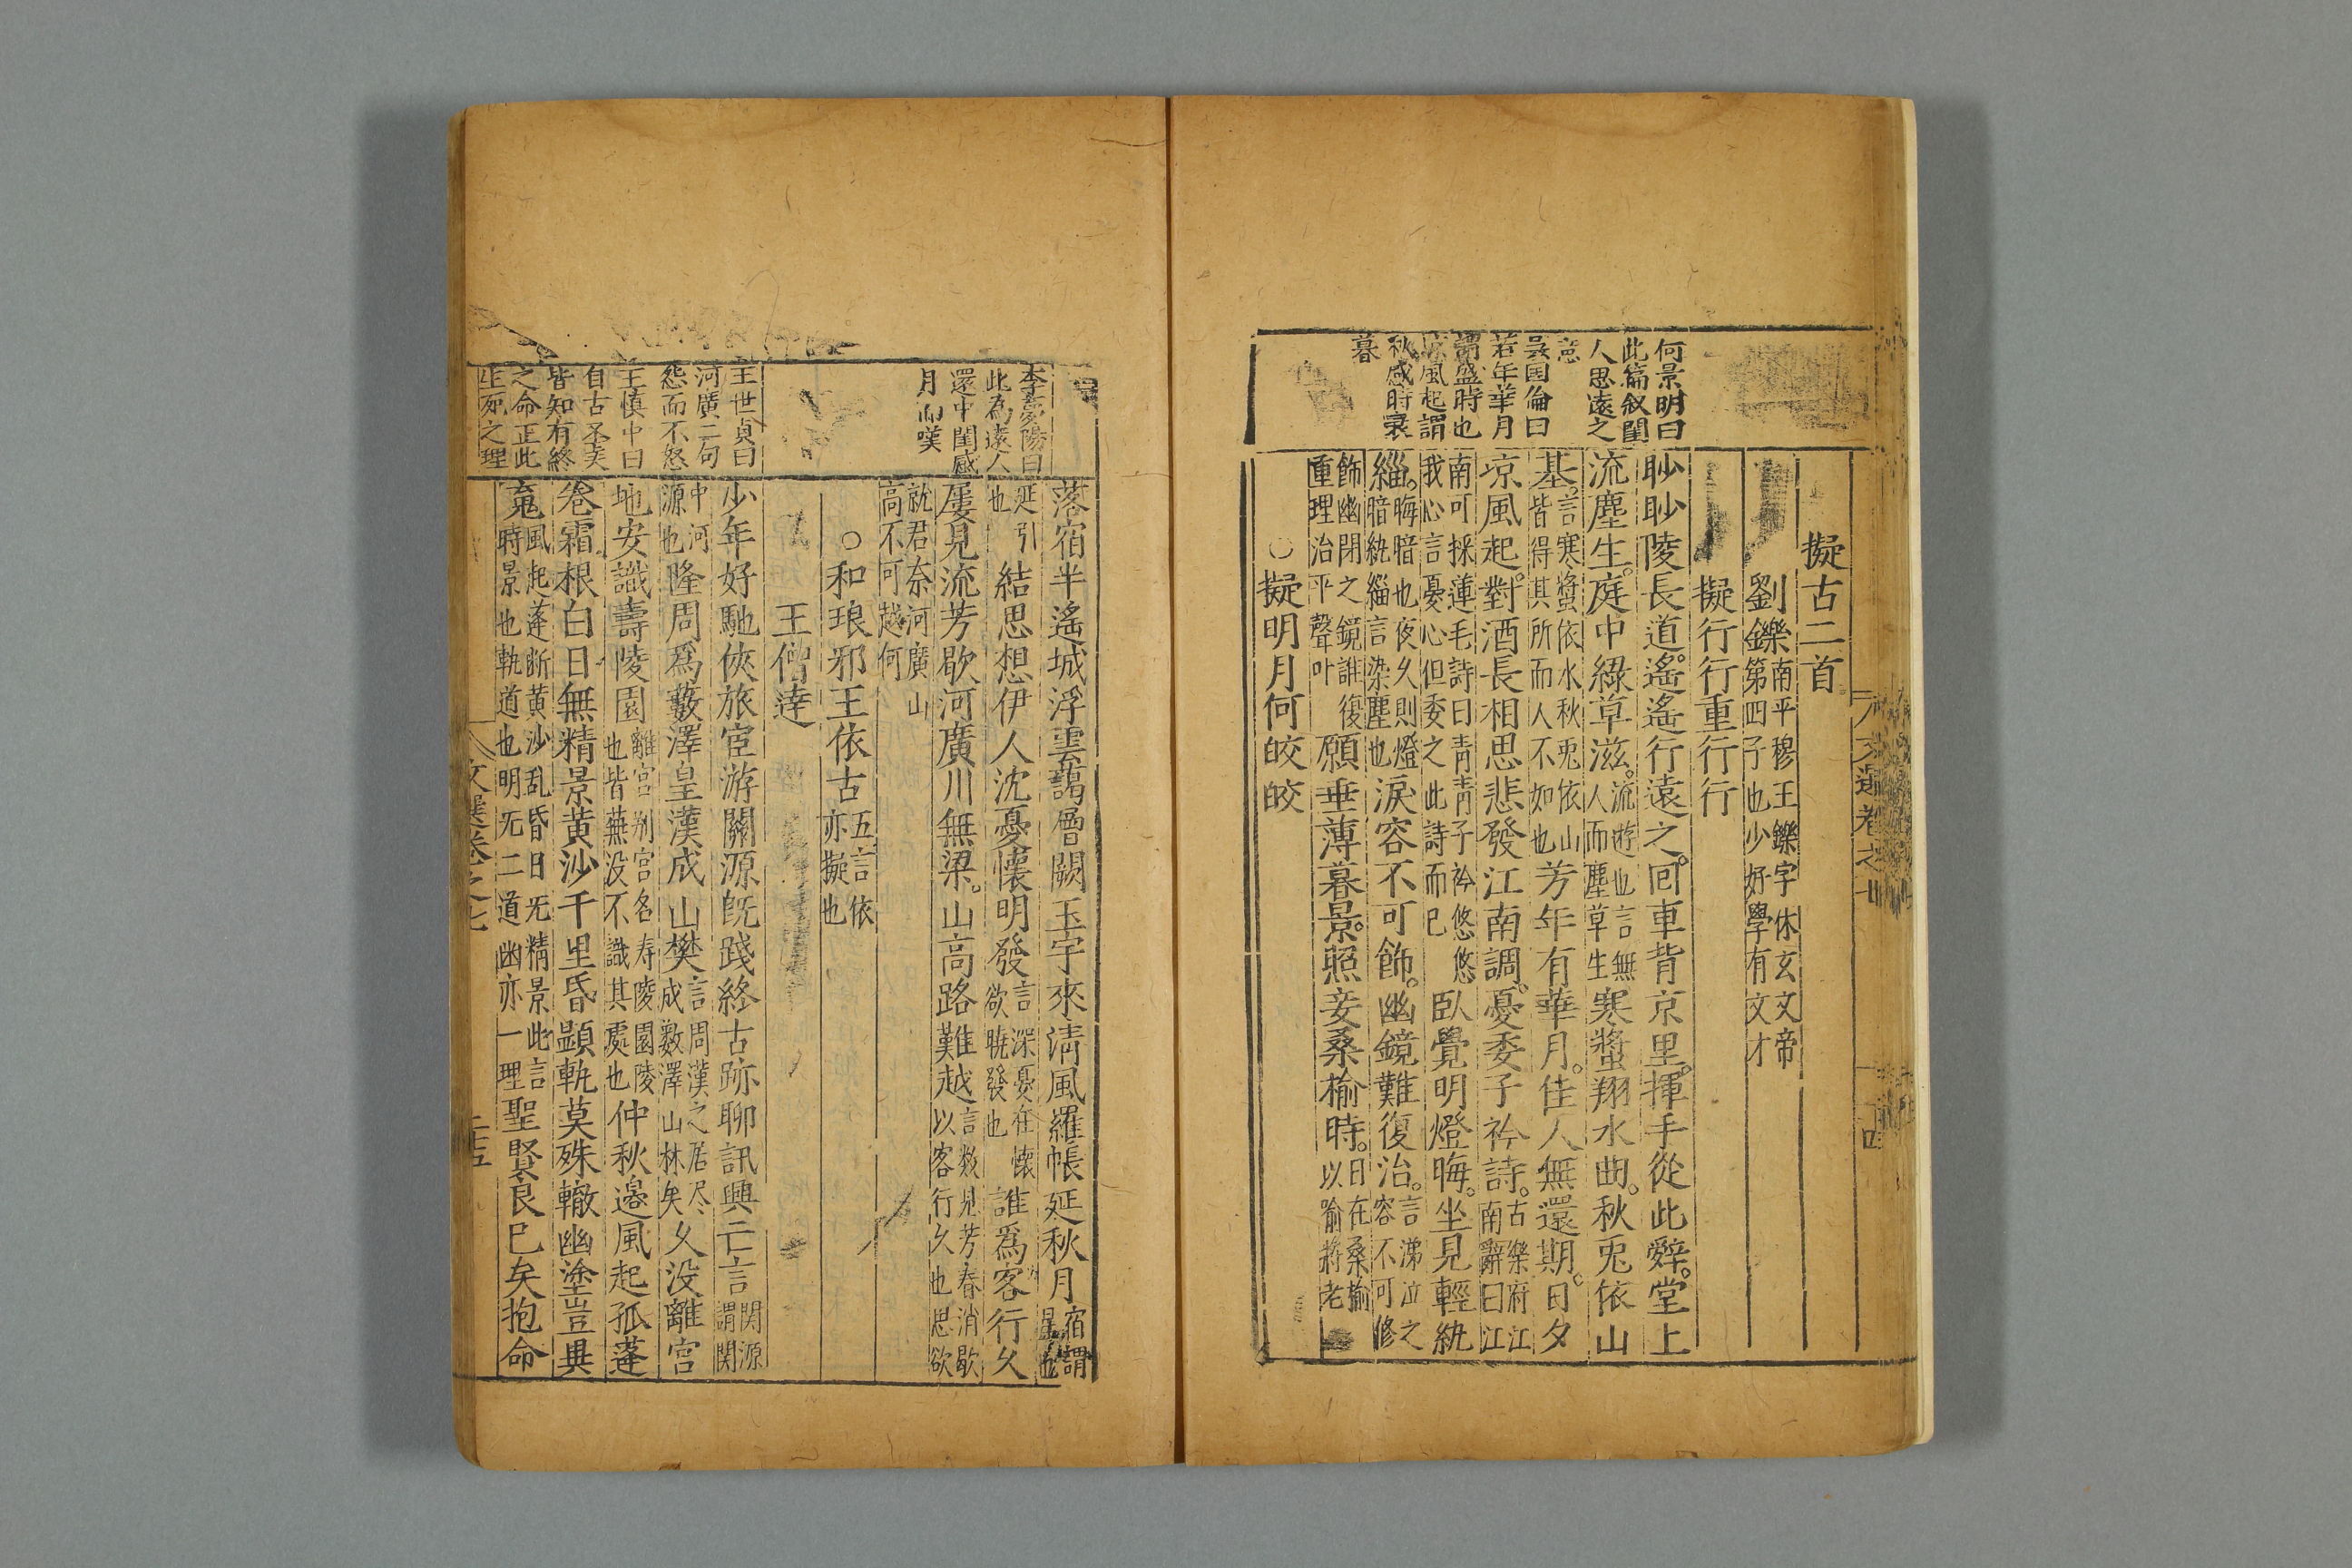 何景明曰
此篇叙閨
人思遠之
意
吳国倫曰
若年華月
謂盛時也
凉風起謂
秋感時衰
暮
擬古二首
劉鑠
南平穆王鑠字休玄文帝
第四子也少好學有文才
擬行行重行行
眇眇陵長道遙遙行遠之回車背京里揮手從此辤堂上
流塵生庭中綠草滋
流遊也言無
人而塵草生
寒螿翔水曲秋兎依山
基
言寒螿依水秋兎依山
皆得其所而人不如也
芳年有華月佳人無還期日夕
凉風起對酒長相思悲發江南調憂委子衿詩
古樂府江
南辭曰江
南可採蓮毛詩曰青青子衿悠悠
我心言憂心但委之此詩而已
臥覺明燈晦坐見輕紈
緇
晦暗也夜久則燈
暗紈緇言染塵也
淚容不可飾幽鏡難復治
言涕泣之
容不可修
飾幽閉之鏡誰復
重理治平聲叶
願垂薄暮景照妾桑榆時
日在桑榆
以喻將老
○擬明月何皎皎
文選卷之七
李夢陽曰
此為遠人
還中閨感
月而嘆
王世貞曰
河廣二句
怨而不怒
王慎中曰
自古圣美
皆知有終
之命正此
生死之理
落宿半遙城浮雲藹層闕玉宇來清風羅帳延秋月
宿謂
星也
延引
也
結思想伊人沈憂懷明發
言深憂在懷
欲曉發也
誰爲客行久
屢見流芳歇河廣川無梁山高路難越
言数見芳春消歇
以客行久也思欲
就君奈河廣山
高不可越何
○和琅邪王依古
五言依
亦擬也
王僧達
少年好馳俠旅宦游關源旣踐終古跡聊訊興亡言
関源
謂関
中河
源也
隆周爲藪澤皇漢成山樊
言周漢之居尽
成藪澤山林矣
久没離宮
地安識壽陵園
離宮别宮名寿陵園陵
也皆蕪没不識其處也
仲秋邊風起孤蓬
卷霜根白日無精景黄沙千里昏顯軌莫殊轍幽塗豈異
䰟
風起蓬断黄沙乱昏日无精景此言
時景也軌道也明无二道幽亦一理
聖賢良已矣抱命
文選卷之七
二十五